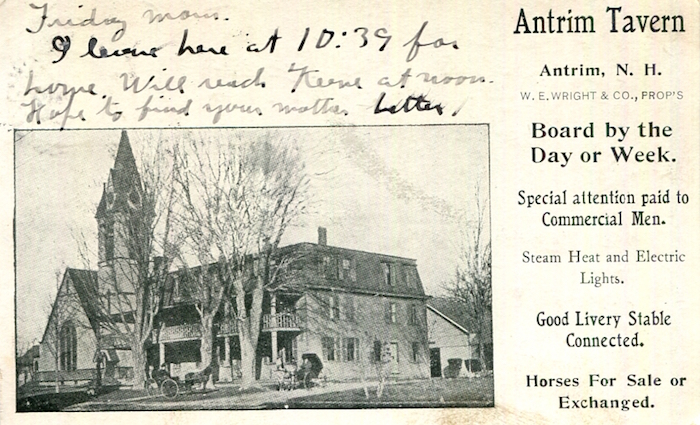 Friday morn.
I leave here at 10:39 for
home. Will reach Keene at noon.
Hope to find your mother better.
Antrim Tavern
Antrim, N. H.
W. E. WRIGHT & CO., PROP'S
Board by the
Day or Week.
Special attention paid to
Commercial Men.
Steam Heat and Electric
Lights.
Good Livery Stable
Connected.
Horses For Sale or
Exchanged.